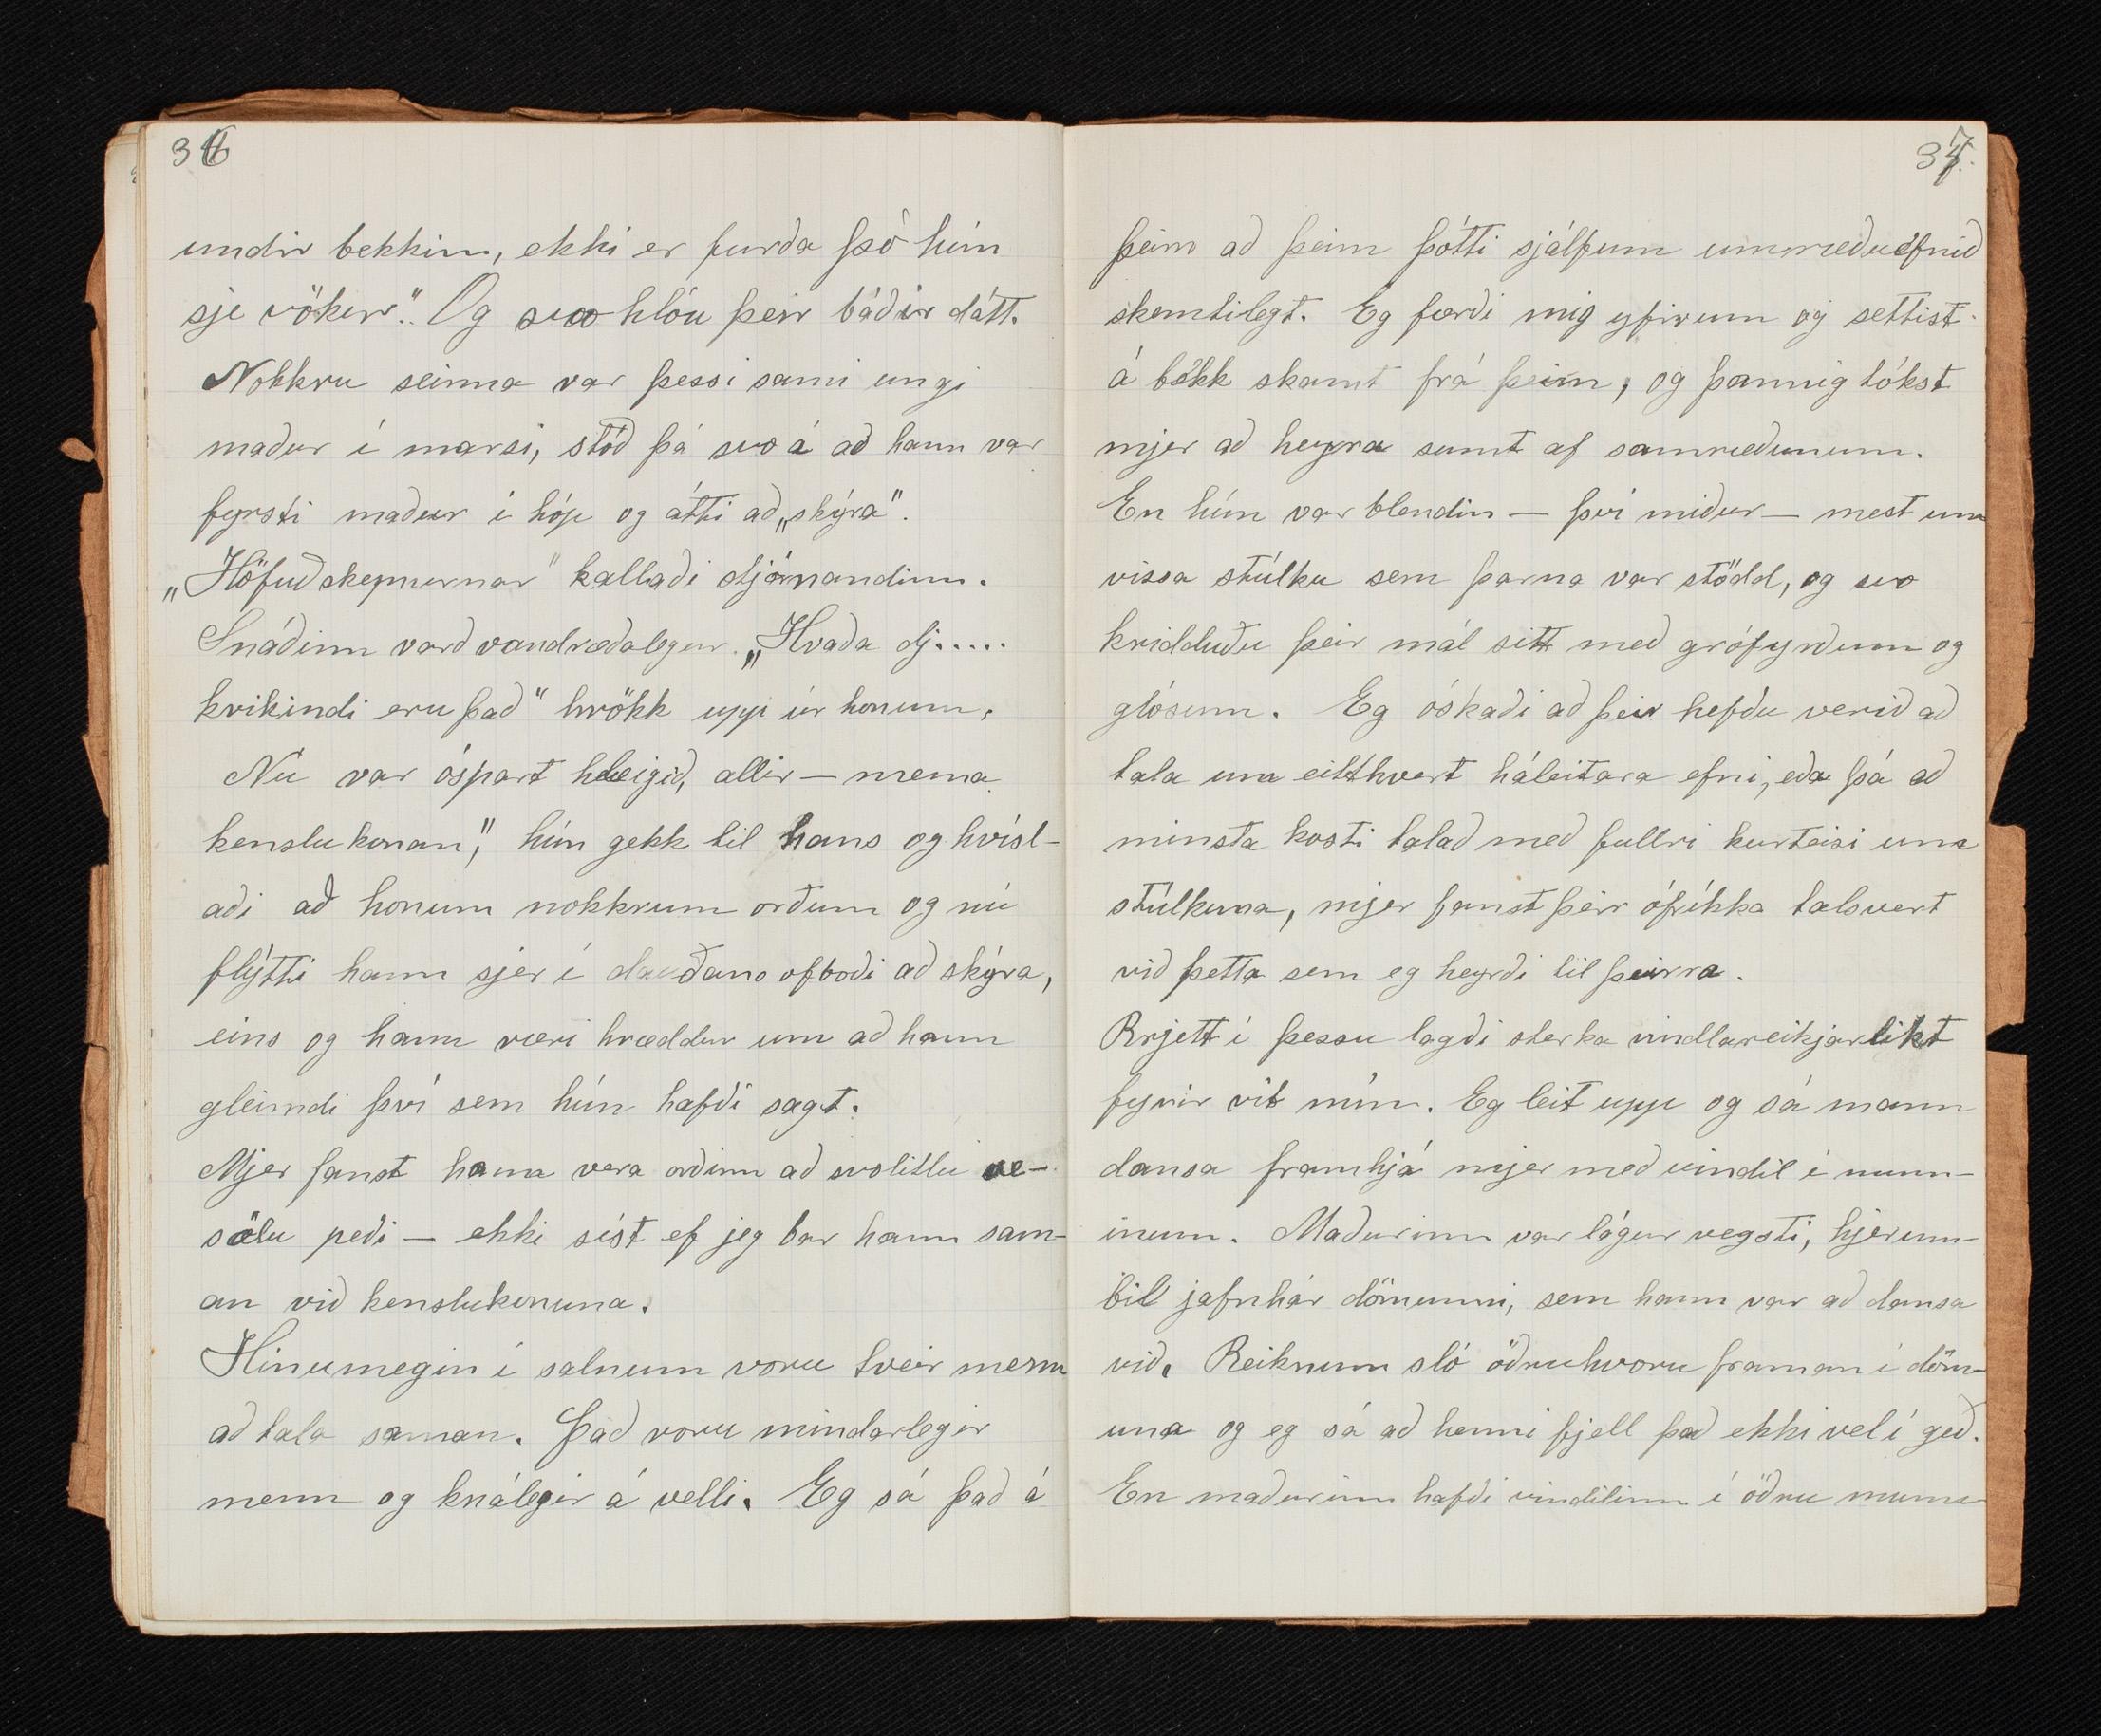 36
undir bekkinn, ekki er furða þó hún
sje vökur". Og svo hlóu þeir báðir dátt.
Nokkru seinna var þessi sami ungi
maður í marsi, stóð þá svo á að hann var
fyrsti maður í hóp og átti að „skýra".
„Höfuðskepnurnar" kallaði stjórnandinn.
Snáðinn varð vandræðalegur. „Hvaða dj.....
kvikindi eru það" hrökk upp úr honum.
Nú var óspart hleigið, allir — nema
kenslukonan", hún gekk til hans og hvísl-
aði að honum nokkrum orðum og nú
flýtti hann sjer í dauðans ofboði að skýra,
eins og hann væri hræddur um að hann
gleimdi því sem hún hafði sagt.
Mjer fanst hann vera orðinn að svolitlu ve-
sölu peði — ekki síst ef jeg bar hann sam-
an við kenslukonuna.
Hinumegin í salnum voru tveir menn
að tala saman. Það voru mindarlegir
menn og knálegir á velli. Eg sá það á
37.
þeim að þeim þótti sjálfum umræðuefnið
skemtilegt. Eg færði mig yfirum og settist
á bekk skamt frá þeim, og þannig tókst
mjer að heyra sumt af samræðunum.
En hún var blendin — því miður — mest um
vissa stúlku sem þarna var stödd, og svo
kridduðu þeir mál sitt með grófyrðum og
glósum. Eg óskaði að þeir hefðu verið að
tala um eitthvert háleitara efni, eða þá að
minsta kosti talað með fullri kurteisi um
stúlkuna, mjer fanst þeir ófríkka talsvert
við þetta sem eg heyrði til þeirra.
Rrjett í þessu lagði sterka vindlareikjarlikt
fyrir vit mín. Eg leit upp og sá mann
dansa framhjá mjer með vindil í munn-
inum. Maðurinn var lágur vegsti, hjerum-
bil jafnhár dömunni, sem hann var að dansa
við. Reiknum sló öðruhvoru framan í döm-
una og eg sá að henni fjell það ekki vel í geð.
En maðurinn hafði vindilinn í öðru munn